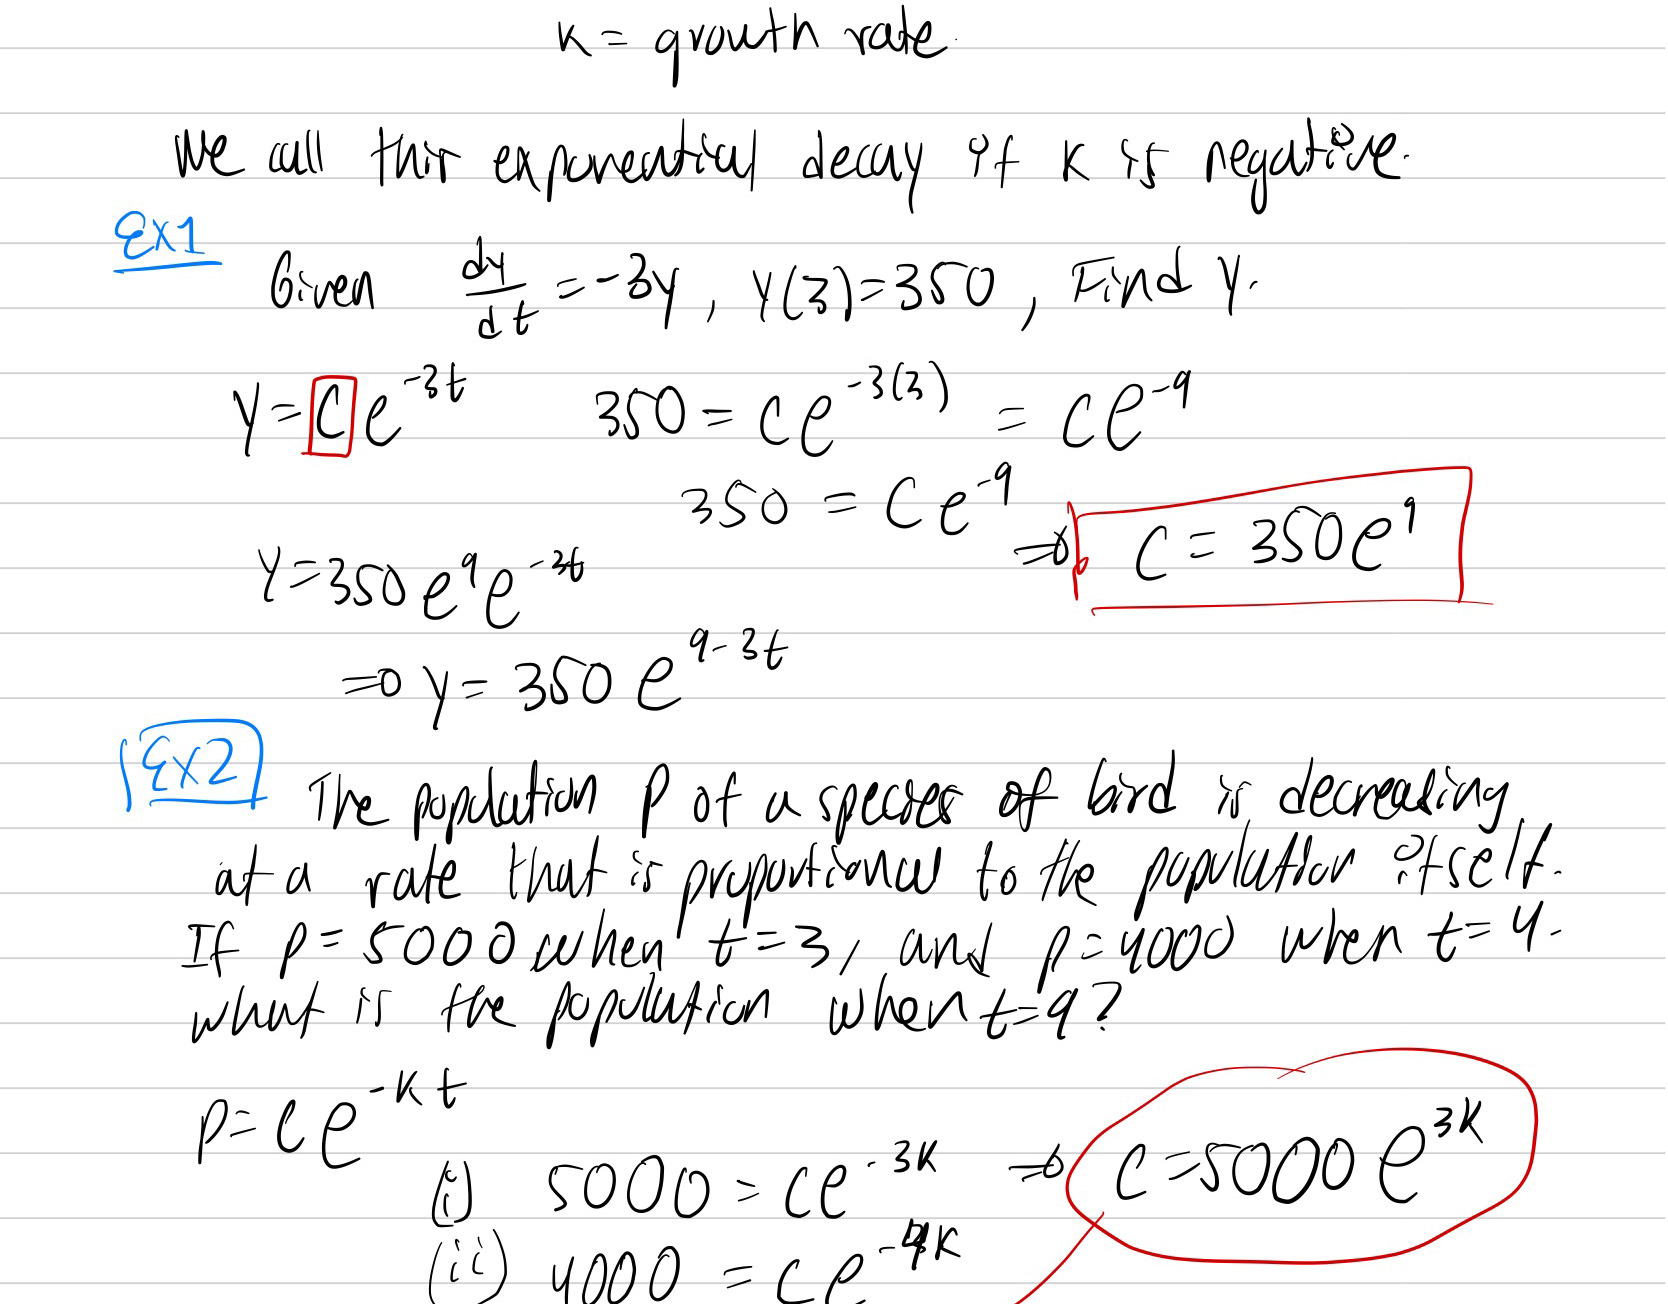 K = growth rate.
We call this exponential decay if K is negative.
Ex1
Given dy/dt = -3y, y(3)=350, Find y.
y = C e^{-3t}    350 = Ce^{-3(3)} = Ce^{-9}
350 = Ce^{-9}
⇒ C = 350e^9
y = 350e^9 e^{-3t}
⇒ y = 350 e^{9-3t}
Ex2 The population P of a species of bird is decreasing
at a rate that is proportional to the population itself.
If P = 5000 when t = 3, and P = 4000 when t = 4.
what is the population when t = 9?
P = Ce^{-Kt}
(i) 5000 = Ce^{-3K} ⇒ C = 5000 e^{3K}
(ii) 4000 = Ce^{-4K}